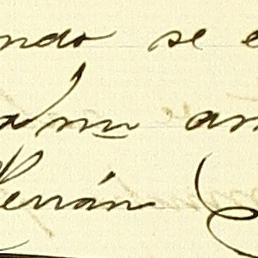 ndo se e
a mi am
Herrán